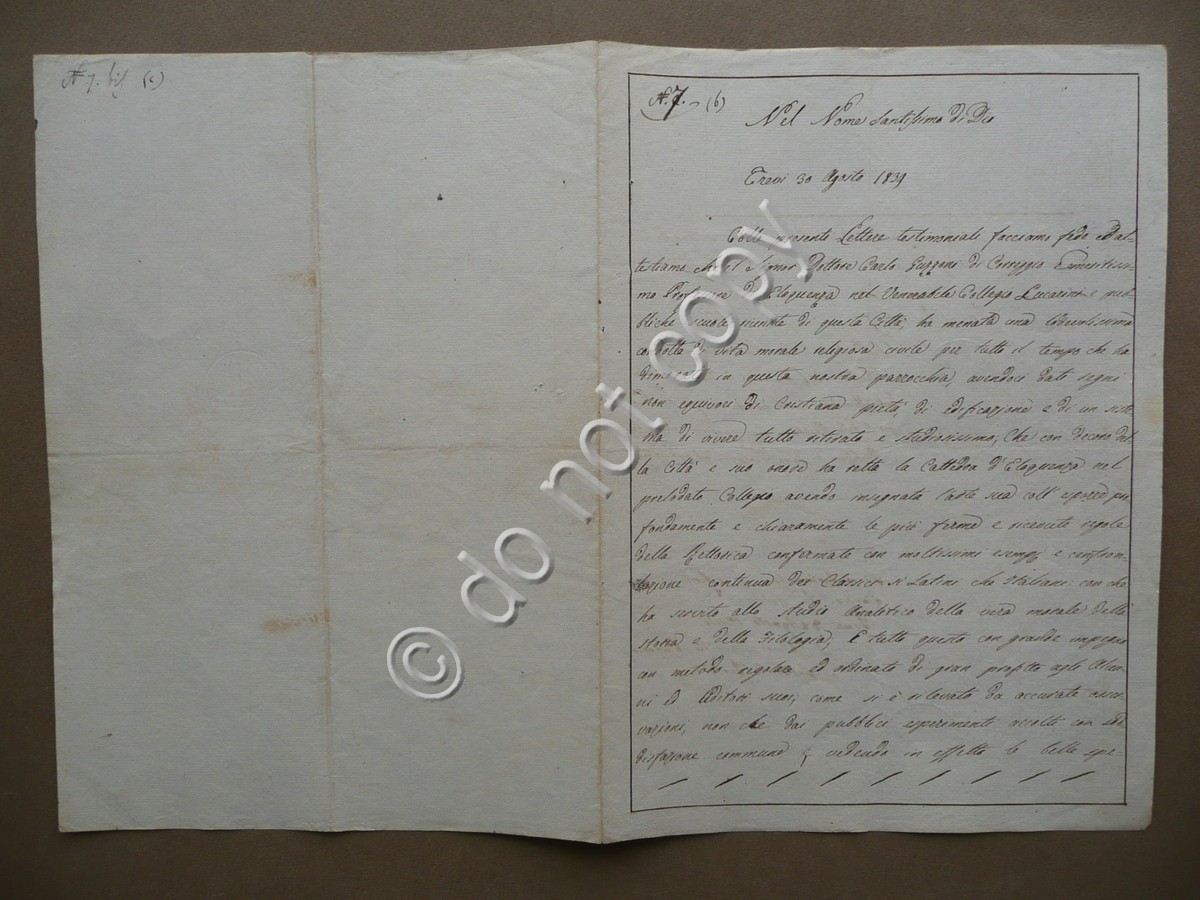 N. 7. bis (c)
N. 7. - (b)
Nel Nome Santissimo di Dio
Trevi 30 Agosto 1839
Colle presenti Lettere testimoniali facciamo fede ed at-
testiamo che il Signor Dottore Carlo Guzzoni di Correggio Emeritissi-
mo Professore di Eloquenza nel Venerabile Collegio Lucarini e pub-
bliche scuole riunite di questa Città, ha menata una lodevolissima
condotta di vita morale religiosa civile per tutto il tempo che ha
dimorato in questa nostra parrocchia, avendoci dati segni
non equivoci di Cristiana pietà di edificazione e di un siste-
ma di vivere tutto ritirato e studiosissimo, Che con decoro del-
la Città e suo onore ha retta la Cattedra d'Eloquenza nel
prelodato Collegio avendo insegnata l'arte sua coll' esporre pro-
fondamente e chiaramente le più ferme e ricevute regole
della Rettorica confermate con moltissimi esempj e confron-
tazione continua dei Classici sì Latini che Italiani: con che
ha servito allo studio Analitico della vera morale della
storia e della Filologia, E tutto questo con grande impegno
con metodo regolare ed ordinato di gran profitto agli Alun-
ni ed Uditori suoi, come si è rilevato da accurate osser-
vazioni, non che dai pubblici esperimenti accolti con sod-
disfazione commune vedendo in effetto le belle spe-
© do not copy